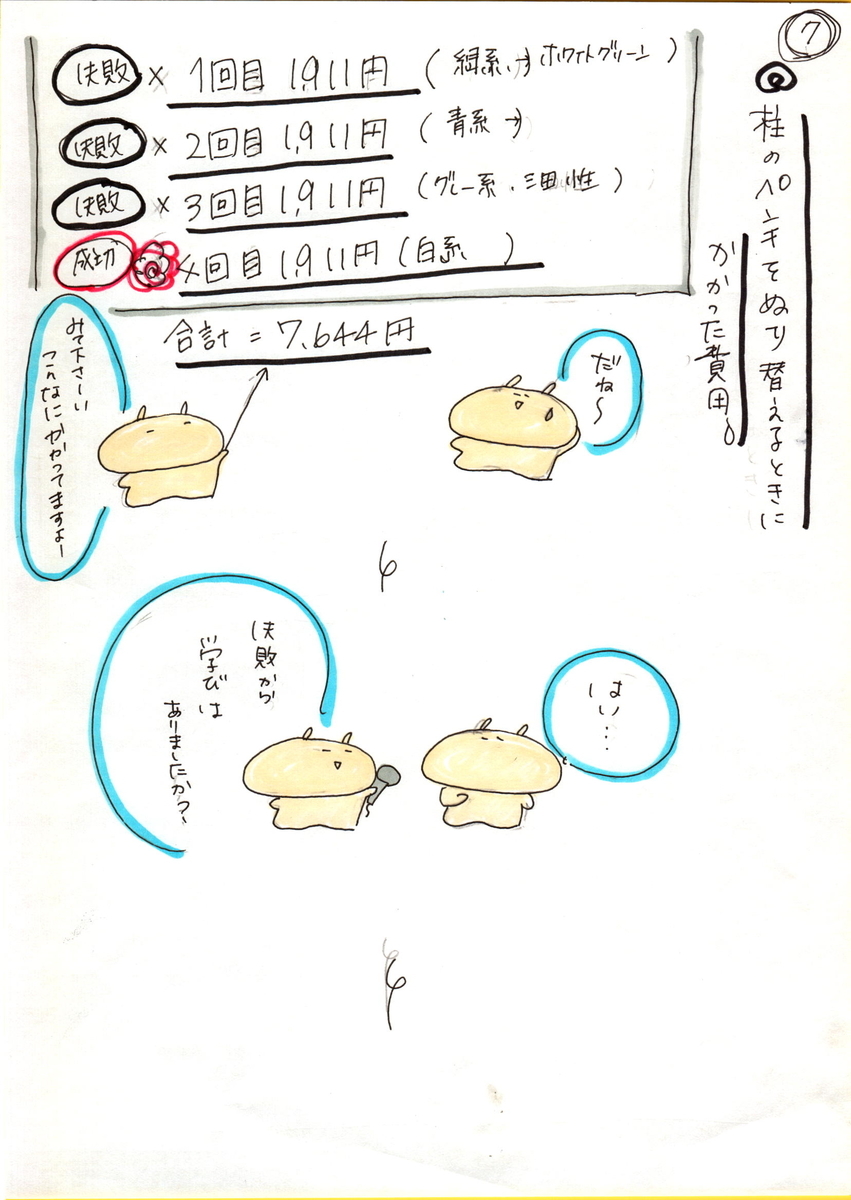 7
柱のペンキをぬり替えるときに
かかった費用。
失敗 × 1回目 1,911円 (緑系、ホワイトグリーン)
失敗 × 2回目 1,911円 (青系
失敗 × 3回目 1,911円 (グレー系、油性)
成功 4回目 1,911円 (白系 )
合計 = 7,644円
だね〜
みて下さーい
こんなにかかってますよー
失敗から
学びは
ありましたか?
はい・・